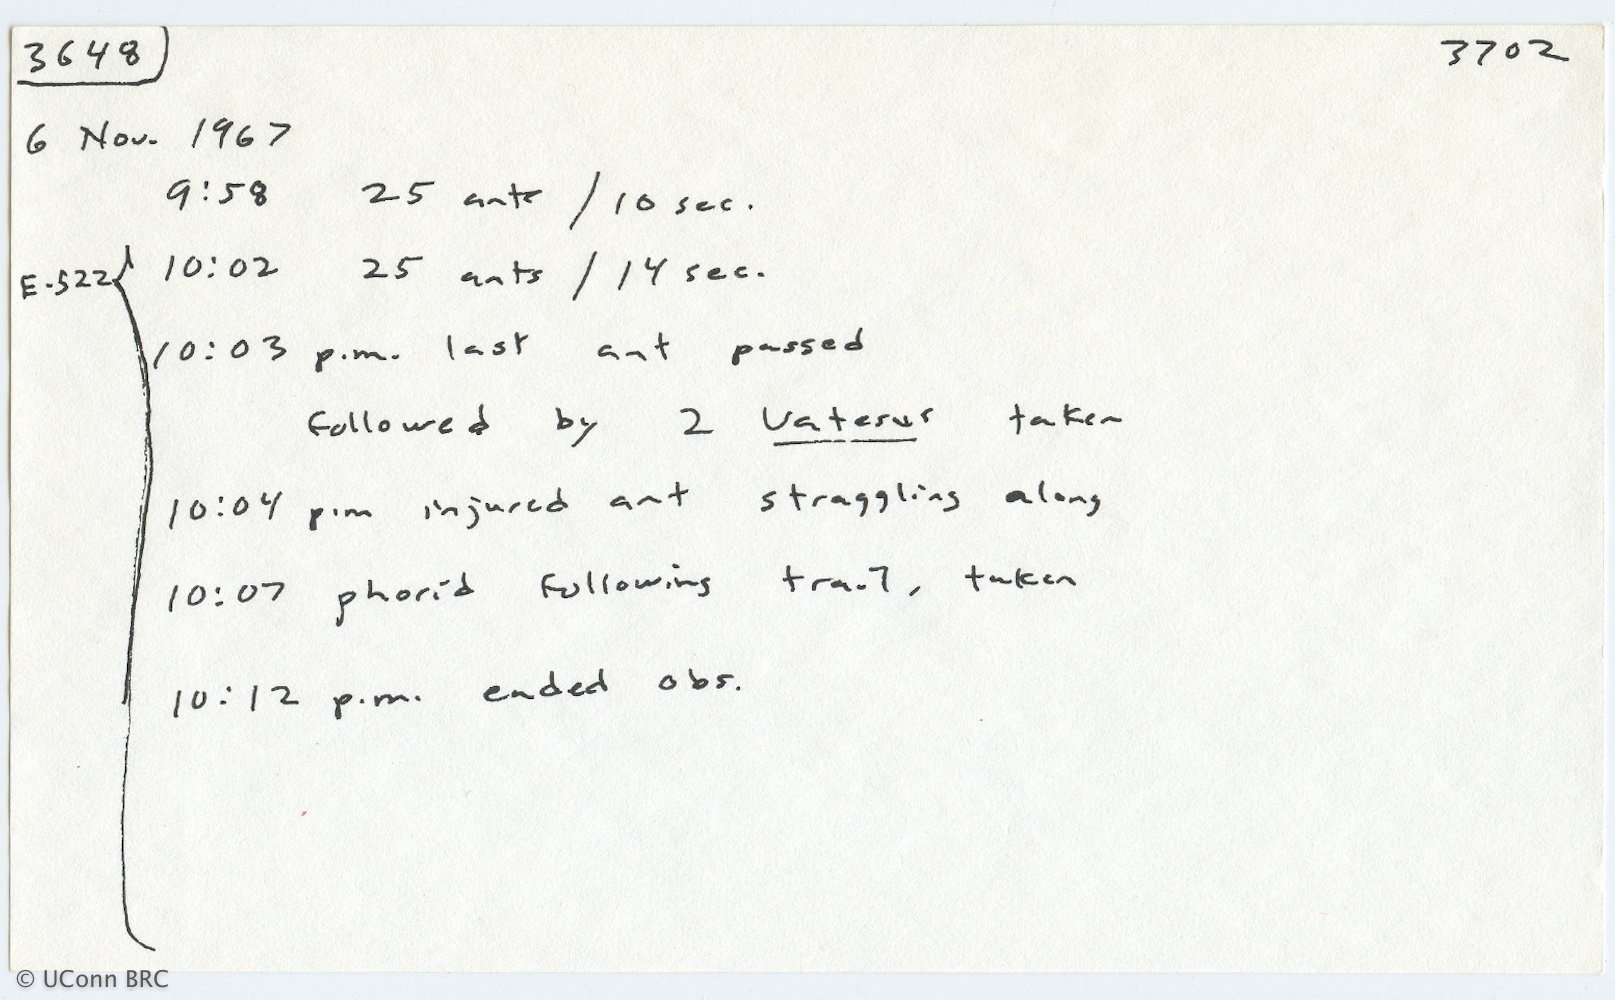 3648 3702
6 Nov. 1967
9:58 25 ants / 10 sec.
E-522 { 10:02 25 ants / 14 sec.
10:03 p.m. last ant passed
followed by 2 Vatesus taken
10:04 p.m injured ant straggling along
10:07 phorid following trail, taken
10:12 p.m. ended obs.
© UConn BRC